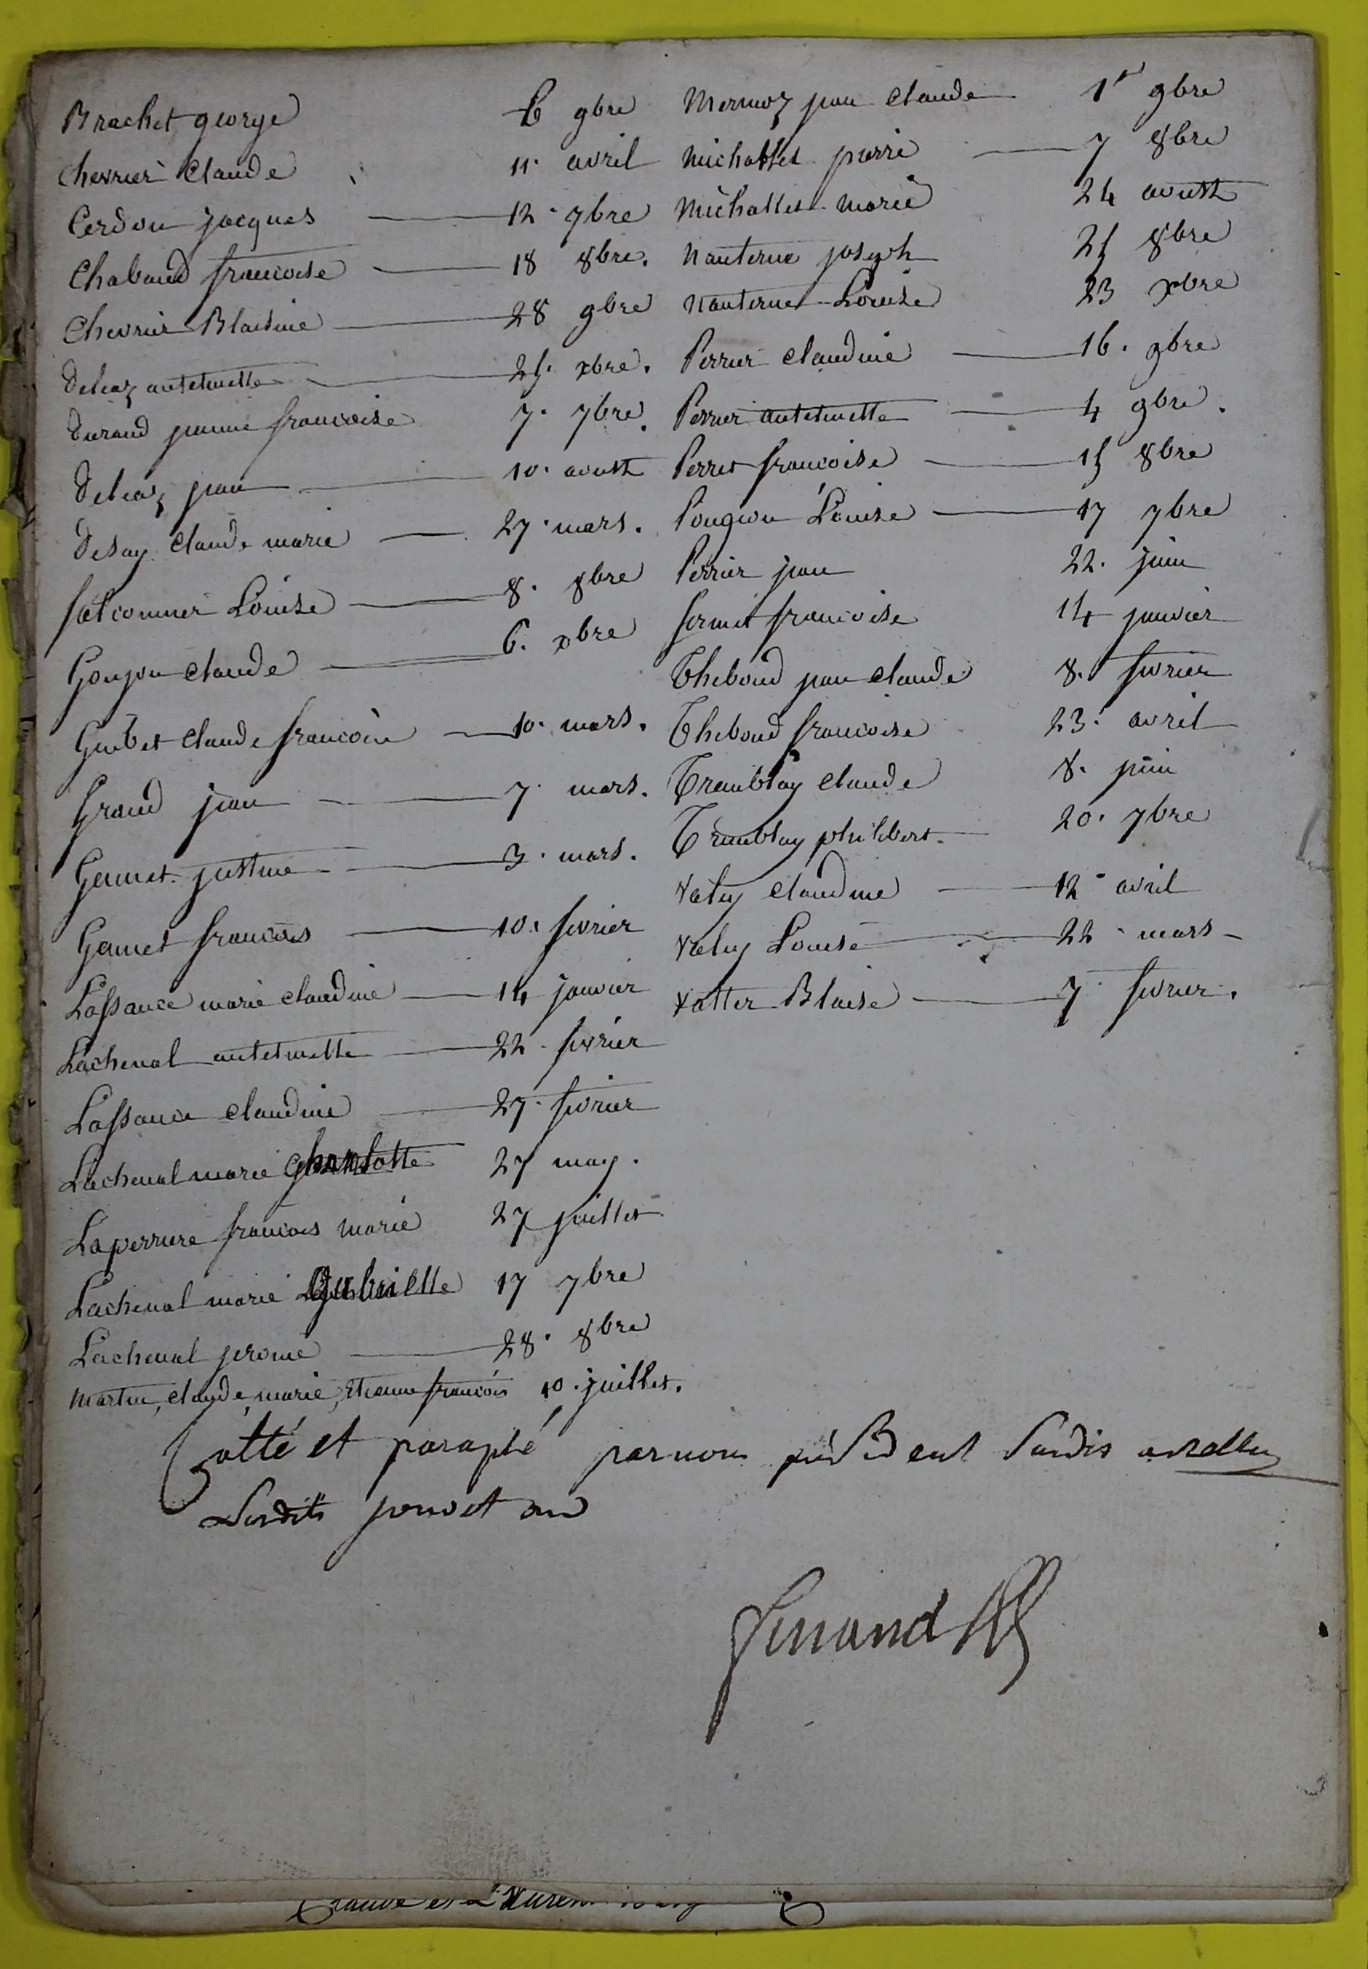 Brachet george 6 9bre
chevrier claude 11. avril
Cerdon jacques 12. 7bre
Chaband francoise 18 8bre.
Chevrier Blaisine 28 9bre
deleaz antetinette 25. xbre.
durand jeanne francoise 7. 7bre.
deleaz jean 10. aoust
desay claude marie 27. mars.
falconnier Louise 8. 8bre
Goujon claude 6. xbre
Guibet claude francois 10. mars.
Grand jean 7. mars.
Gemet justine 3. mars.
Gemet francois 10. fevrier
Lassance marie claudine 14 janvier
Lachenal antetinette 22. fevrier
Lassance claudine 27. fevrier
Lachenal marie charlotte 27 may.
Laperriere francois marie 27 juillet
Lachenal marie gabrielle 17 7bre
Lachenal jerome 28. 8bre
martin, claude, marie, etienne francois 10. juillet.
Mermoz jean claude 1er 9bre
michallet pierre 7 8bre
michallet marie 24 aoust
nanterne joseph 25 8bre
nanterne Louise 23 xbre
Perrier claudine 16. 9bre
Perrier antetinette 4 9bre.
Perret francoise 15 8bre
Pougeon Louise 17 7bre
Perrier jean 22. juin
francoise 14 janvier
Theboud jean claude 8. fevrier
Theboud francoise 23. avril
Tremblay claude 8. juin
Tremblay philibert. 20. 7bre
claudine 12 avril
Louise 22. mars
vatter Blaise 7 fevrier.
Cotté et paraphé par nous président Susdis
Susdits jour et an